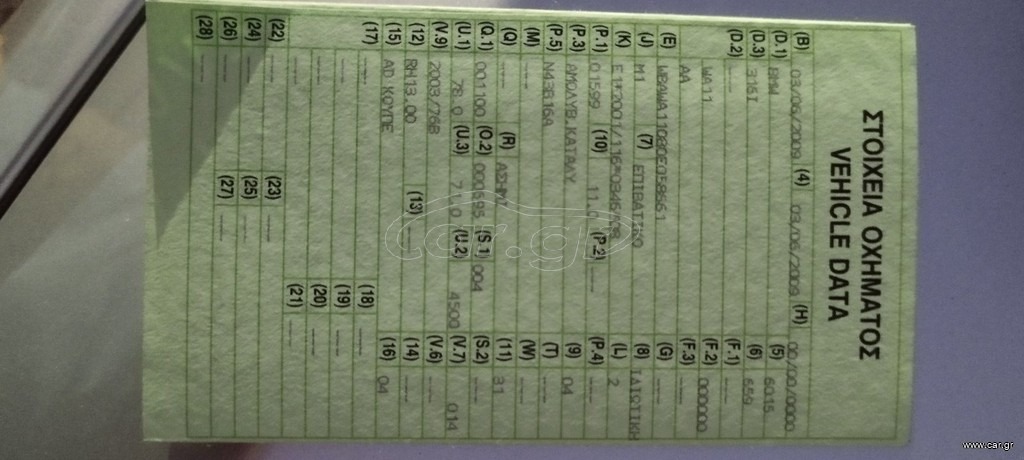 ΣΤΟΙΧΕΙΑ ΟΧΗΜΑΤΟΣ
VEHICLE DATA
(B) 03/06/2009 (4) 03/06/2009 (H) 00/00/0000
(D.1) BMW (5) 6015
(D.3) 316I (6) 659
(D.2) (F.1) ----
WA11 (F.2) 000000
AA (F.3) ----
(E) (G) ----
(J) M1 (7) ΕΠΙΒΑΤΙΚΟ (8) ΙΔΙΩΤΙΚΗ
(K) (L) 2
(P.1) 01599 (10) 11.0 (P.2) ---- (P.4) ----
(P.3) ΑΜΟΛΥΒ.ΚΑΤΑΛΥ (9) 04
(P.5) N43B16A (T) ----
(M) ---- (W) ----
(Q) ---- (R) ΑΣΗΜΙ (11) 31
(Q.1) 001100 (O.2) 000695 (S.1) 004 (S.2) ----
(U.1) 78.0 (U.3) 71.0 (U.2) 4500 (V.7) 014
(V.9) 2003/76B (V.6) ----
(12) RM13.00 (13) ---- (14) ----
(15) AD ΚΟΥΠΕ (16) 04
(17) ---- (18) ----
---- (19) ----
---- (20) ----
---- (21) ----
(22) ---- (23) ----
(24) ---- (25) ----
(26) ---- (27) ----
(28) ----
car.gr
www.car.gr